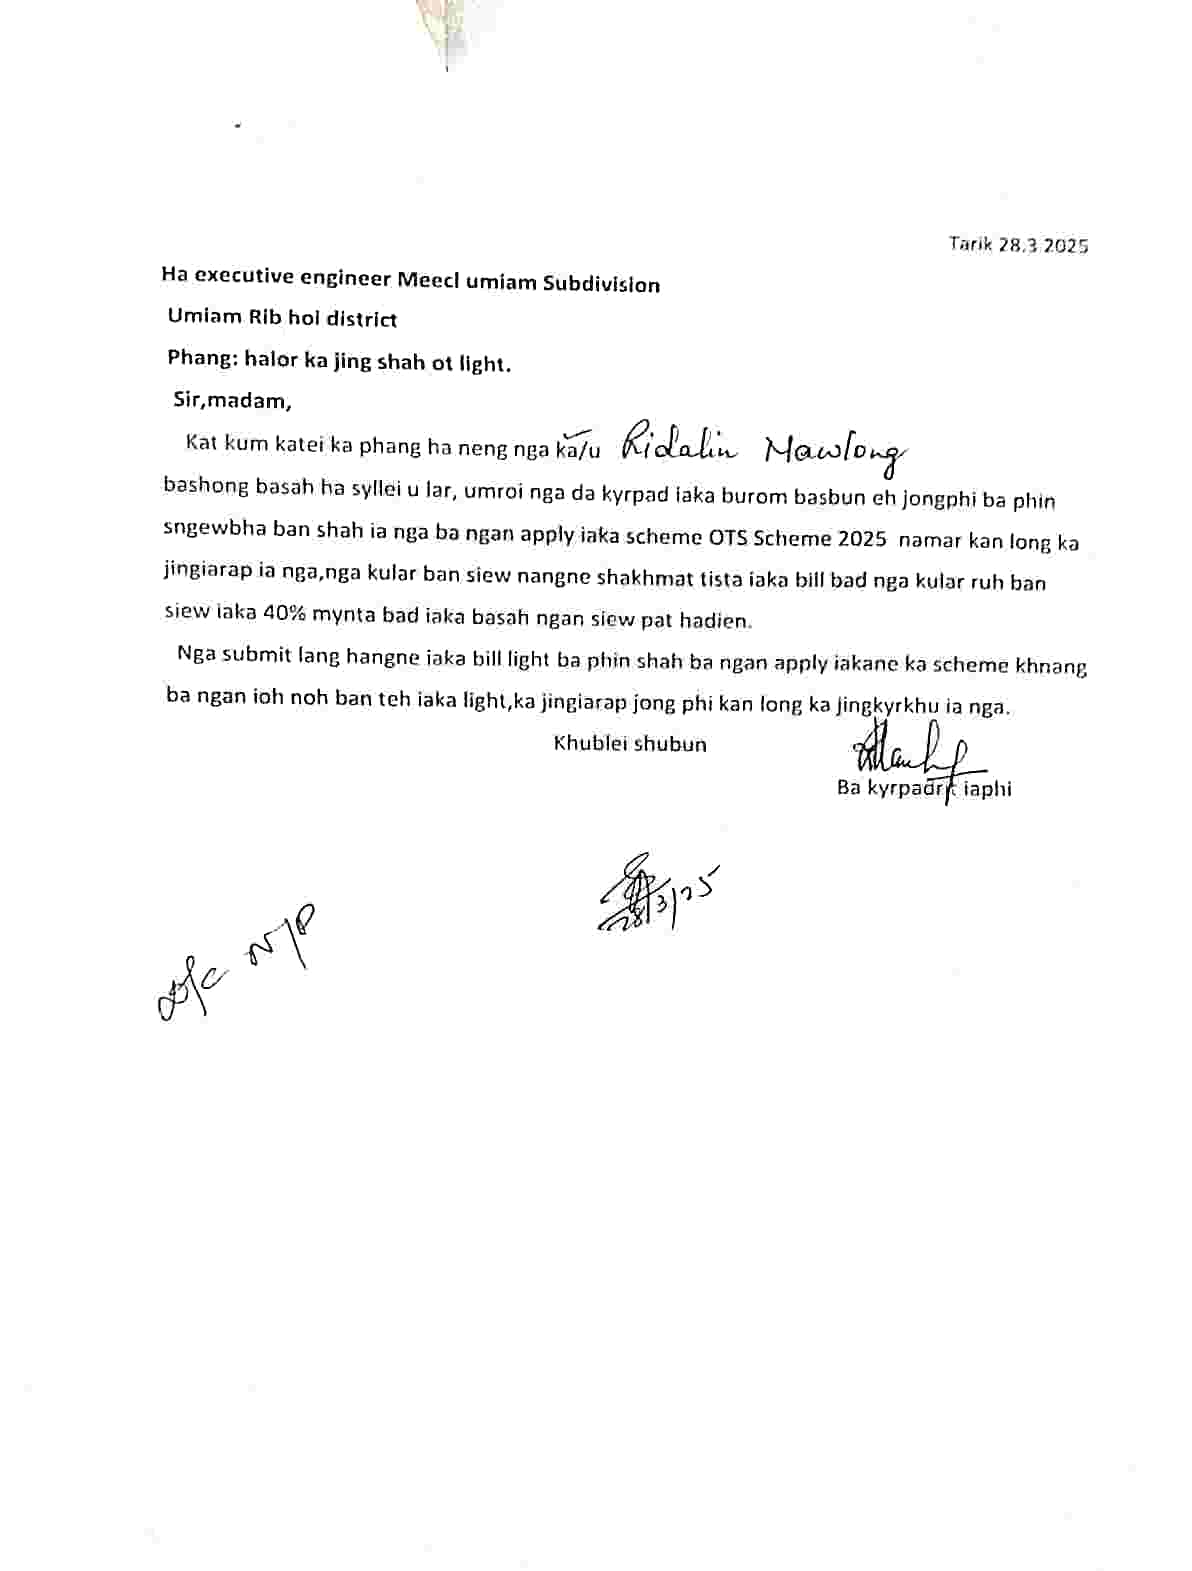 Tarik 28.3 2025
Ha executive engineer Meecl umiam Subdivision
Umiam Rib hoi district
Phang: halor ka jing shah ot light.
Sir,madam,
Kat kum katei ka phang ha neng nga ka/u Ridalin Mawlong
bashong basah ha syllei u lar, umroi nga da kyrpad iaka burom basbun eh jongphi ba phin
sngewbha ban shah ia nga ba ngan apply iaka scheme OTS Scheme 2025 namar kan long ka
jingiarap ia nga,nga kular ban siew nangne shakhmat tista iaka bill bad nga kular ruh ban
siew iaka 40% mynta bad iaka basah ngan siew pat hadien.
Nga submit lang hangne iaka bill light ba phin shah ba ngan apply iakane ka scheme khnang
ba ngan ioh noh ban teh iaka light,ka jingiarap jong phi kan long ka jingkyrkhu ia nga.
Khublei shubun
Ba kyrpad iaphi
28/3/25